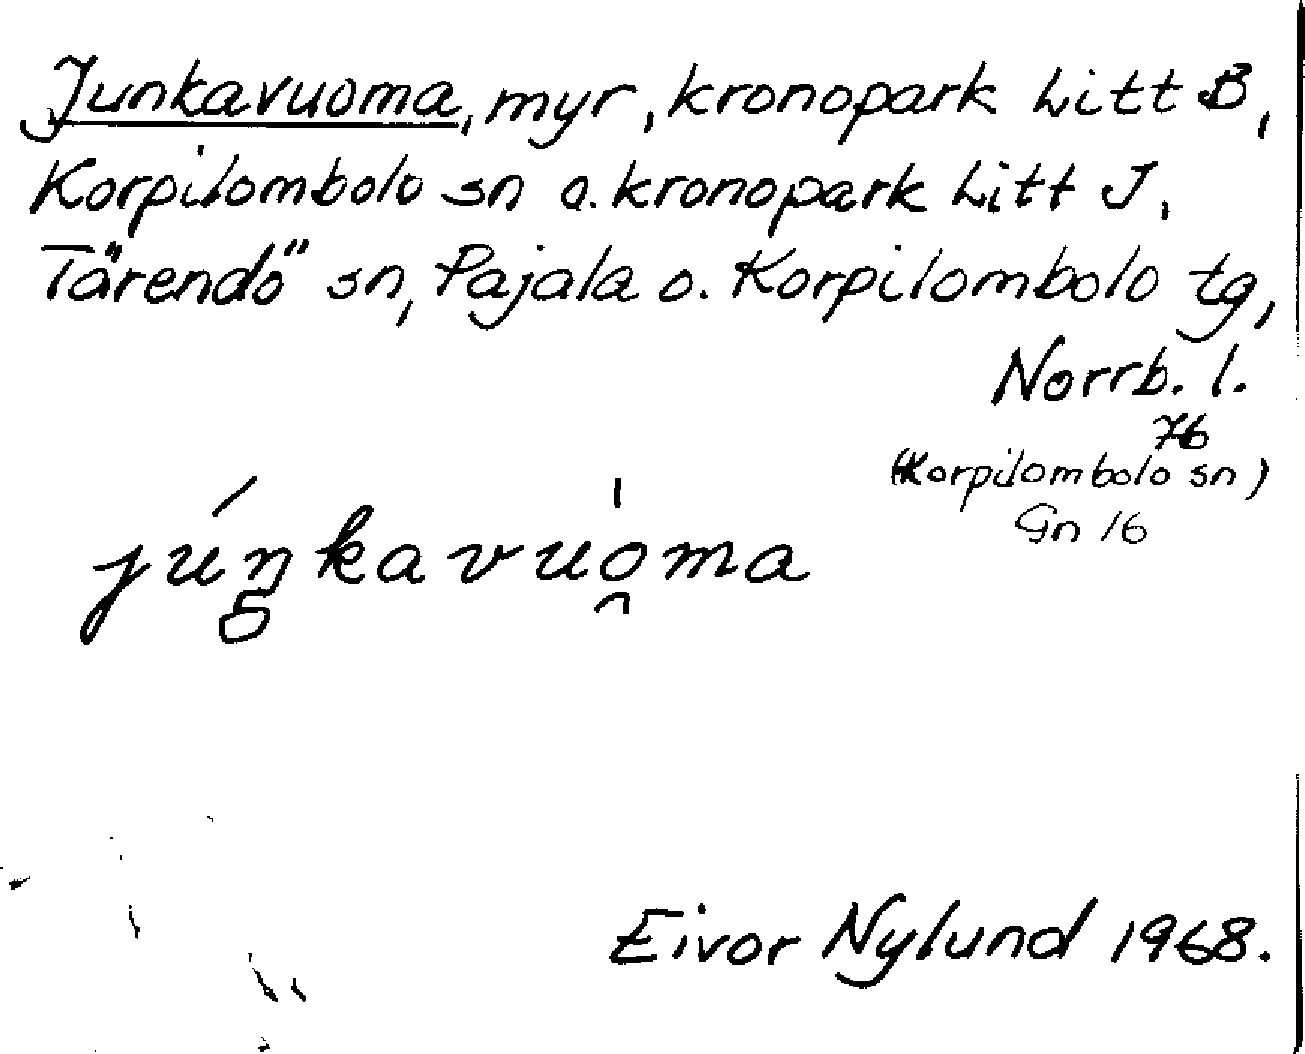 Junkavuoma, myr, kronopark Litt B,
Korpilombolo sn o. kronopark Litt J,
Tärendö sn, Pajala o. Korpilombolo tg,
Norrb. l.
76
(Korpilombolo sn)
Gn 16
júŋkavuoma
Eivor Nylund 1968.